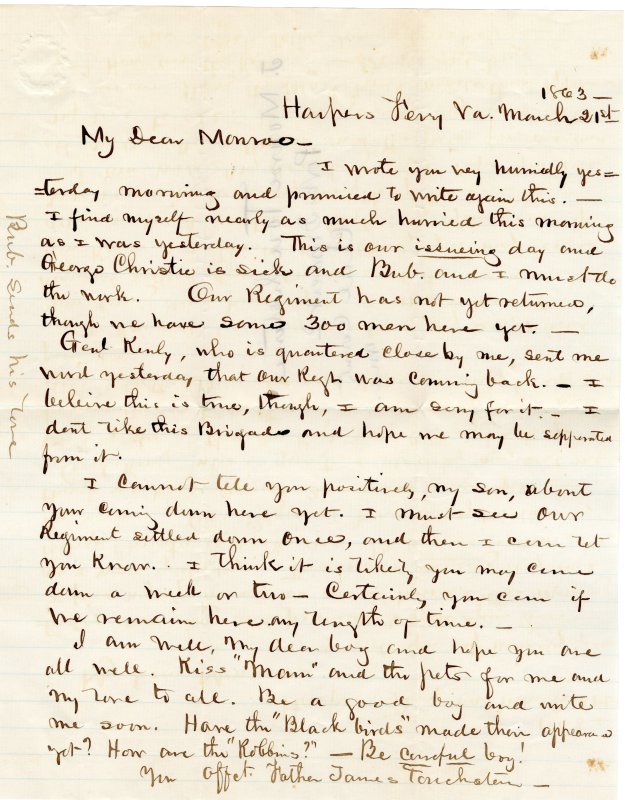 1863 —
Harpers Ferry Va. March 21st
My Dear Monroe —
I wrote you very hurriedly yes=
=terday morning and promised to write again this. —
I find myself nearly as much hurried this morning
as I was yesterday. This is our issueing day and
George Christie is sick and Bub. and I must do
the work. Our Regiment has not yet returned,
though we have some 300 men here yet. —
Genl Kenly, who is quartered close by me, sent me
word yesterday that our Regt was coming back. — I
beleive this is true, though, I am sorry for it. — I
dont like this Brigade and hope we may be sepperated
from it.
I cannot tell you positively, my son, about
your coming down here yet. I must see our
Regiment settled down once, and then I can let
you know. I think it is likely you may come
down a week or two — Certainly you can if
we remain here any length of time. —
I am well, my dear boy and hope you are
all well. Kiss "Mam" and the pets for me and
my love to all. Be a good boy and write
me soon. Have the "Black birds" made their appearance
yet? How are the "Robbins?" — Be careful boy!
Your Affct. Father James Touchstone —
Bub. sends his love